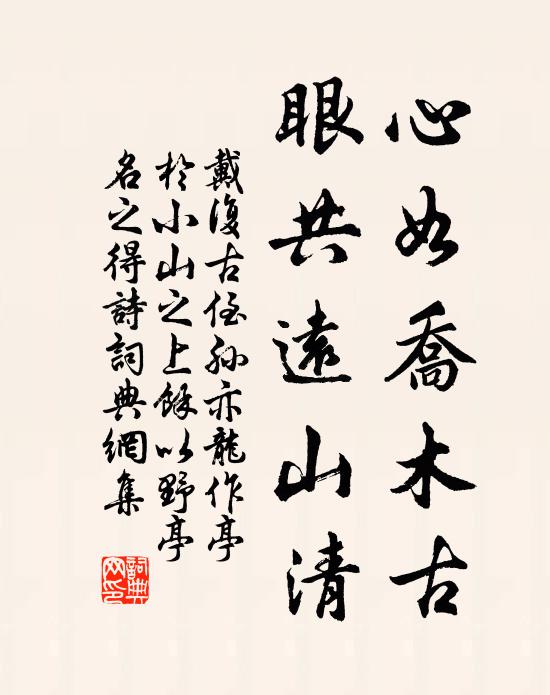 心如喬木古
眼共遠山清
戴復古侄孫亦龍作亭
於小山之上餘以野亭
名之得詩詞典網集
詞典網印